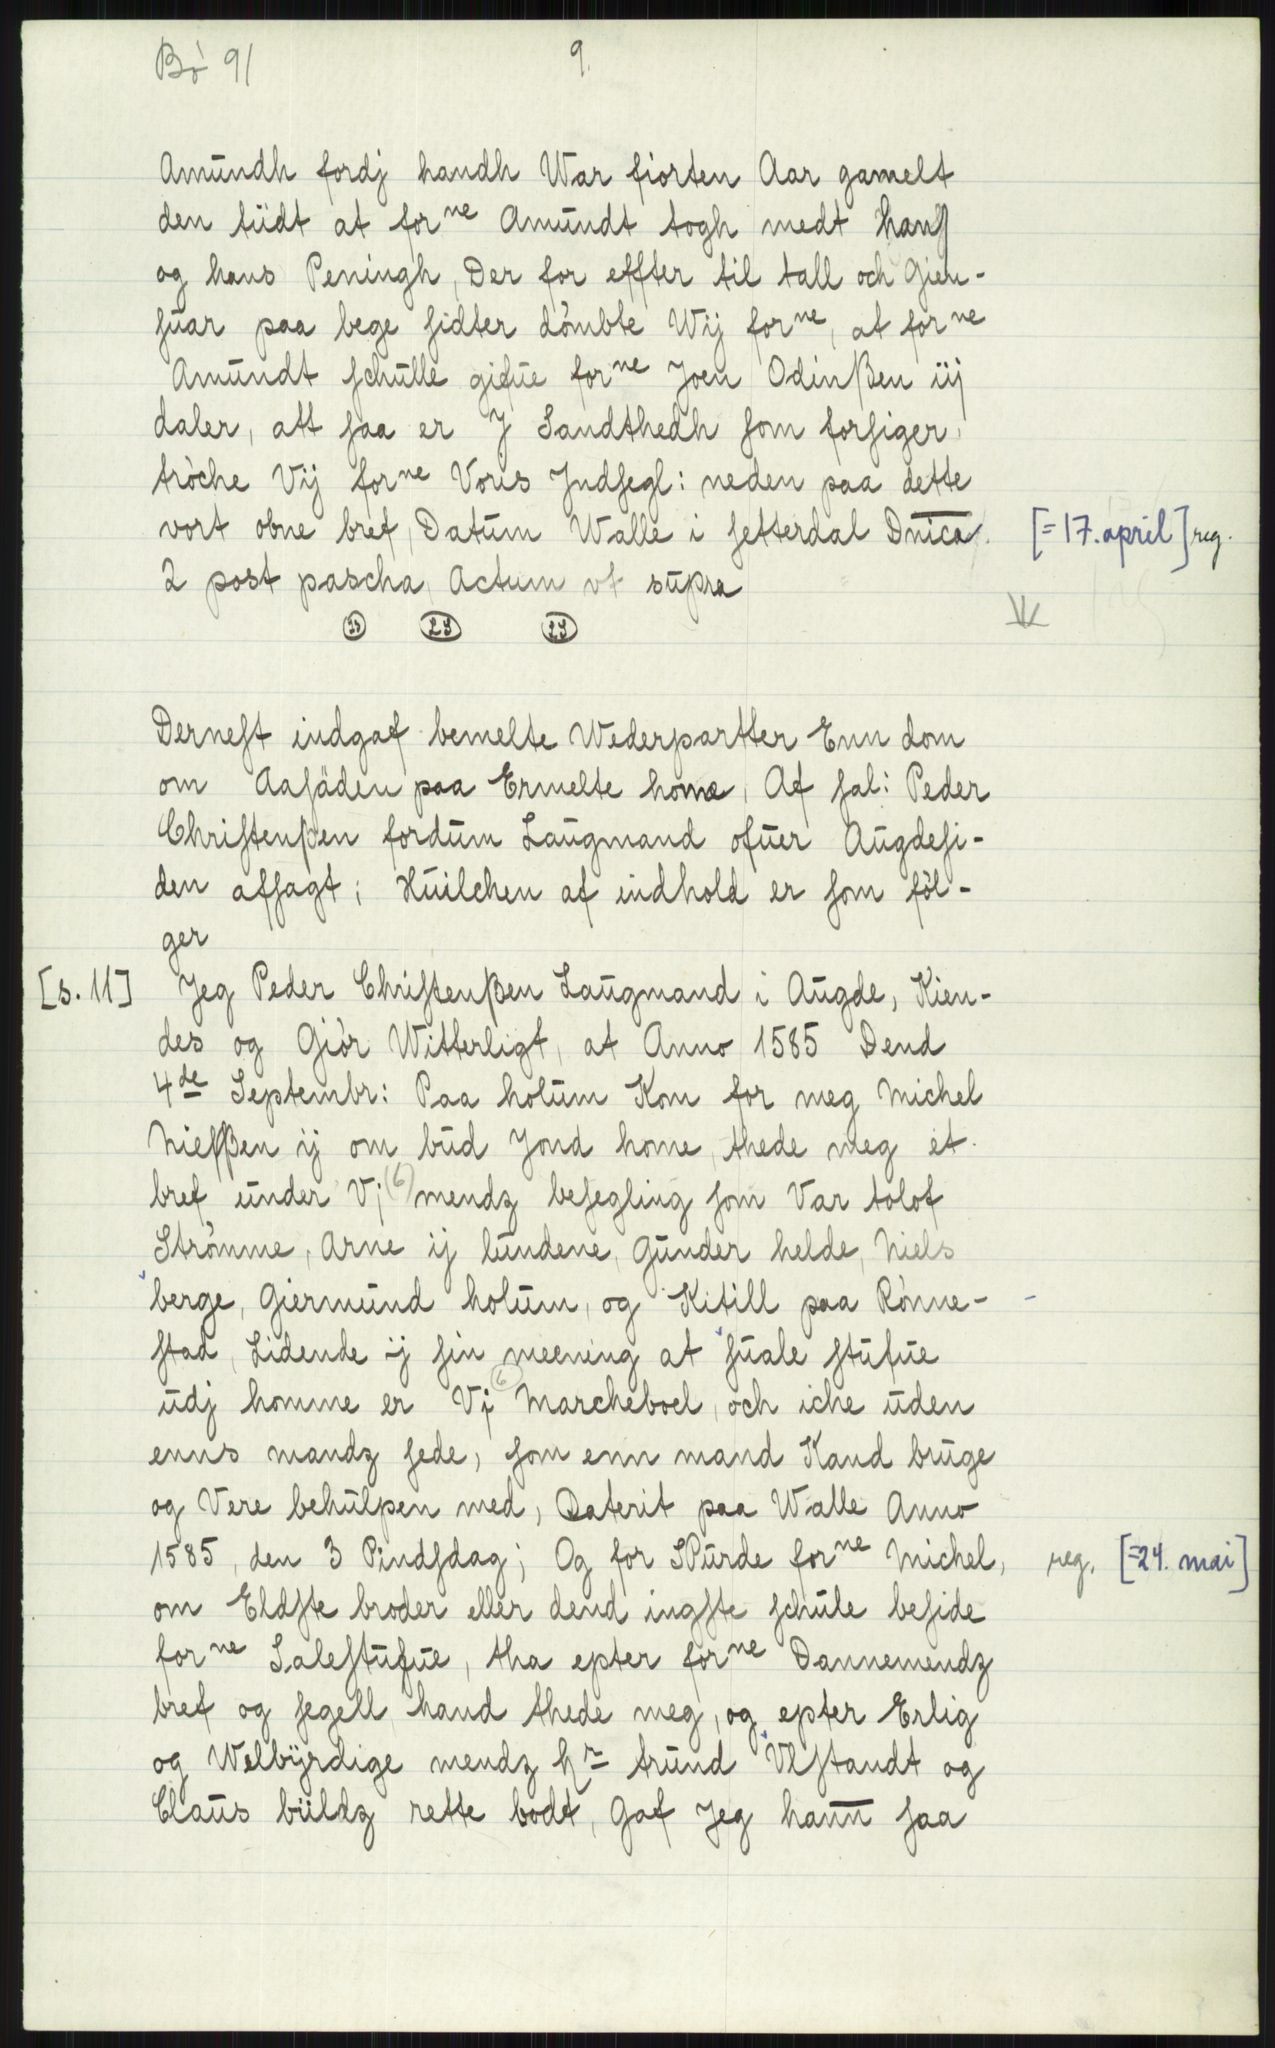 Bö 91
9.
Amundh fordj handh War fiorten Aar gamelt
den tiidt at forne Amundt togh medt hans
og hans Peningh, Der for effter til tall och Gien-
suar paa bege sidter dömbte Wij forne, at forne
Amundt schulle gifue forne Joen Odinßen iij
daler, att saa er J Sandthedh som forsiger,
tröche Vij forne Voris Jndsegl: neden paa dette
vort obne bref, Datum Walle i setterdal Dnica [=17. april] reg.
2 post pascha, Actum vt supra
LS LS LS
Dernest indgaf bemelte Wederpartter Enn dom
om Aasäden paa Ermelte home, Af sal: Peder
Christenßen fordum Laugmand ofuer Augdesi-
den afsagt; Huilchen af indhold er som föl-
ger
[s. 11] Jeg Peder Christenßen Laugmand i Augde, Kien-
des og Giör Witterligt, at Anno 1585 Dend
4de Septembr: Paa holum Kom for meg Michel
Nielßen ij om bud Jond home, thede meg et
bref under Vj (6) mendz besegling som Var tolof
Strömme, Arne ij lundene, Gunder helde, Niels
berge, Giermund holum, og Kitill paa Rönne-
stad, Lidende ij sin meening at suale stufue
udj homme er Vj (6) Marcheboel, och iche uden
enns mandz sede, som enn mand Kand bruge
og Vere behulpen med, Daterit paa Walle Anno
1585, den 3 Pindsdag; Og for SPurde forne Michel, reg. [=24. mai]
om Eldste broder eller dend ingste schule beside
forne Salestufue, tha epter forne Dannemendz
bref og segell hand thede meg, og epter Erlig
og Welbyrdige mendz Hr trund Vlstandt og
Claus büldz rette bodt, Gaf Jeg hann saa